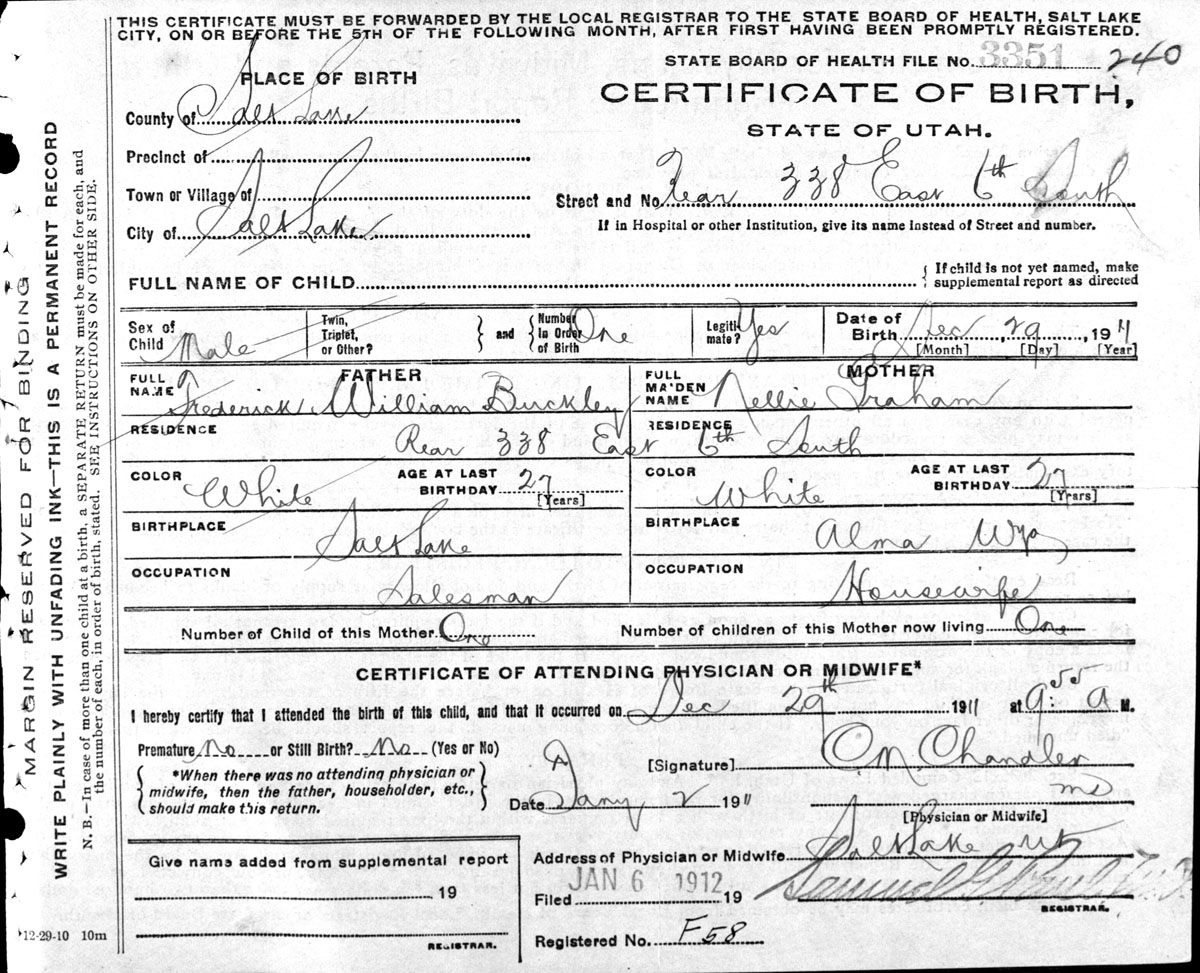 THIS CERTIFICATE MUST BE FORWARDED BY THE LOCAL REGISTRAR TO THE STATE BOARD OF HEALTH, SALT LAKE
CITY, ON OR BEFORE THE 5TH OF THE FOLLOWING MONTH, AFTER FIRST HAVING BEEN PROMPTLY REGISTERED.
STATE BOARD OF HEALTH FILE No. 3351 240
PLACE OF BIRTH
CERTIFICATE OF BIRTH,
STATE OF UTAH.
County of Salt Lake
Precinct of
Town or Village of
City of Salt Lake
Street and No. Rear 338 East 6th South
If in Hospital or other Institution, give its name instead of Street and number.
FULL NAME OF CHILD
{ If child is not yet named, make
supplemental report as directed
Sex of Child Male
Twin, Triplet, or Other?
and
Number in Order of Birth One
Legiti-mate? Yes
Date of Birth Dec, 29, 1911
[Month] [Day] [Year]
FATHER
FULL NAME Frederick William Buckley
MOTHER
FULL MAIDEN NAME Nellie Graham
RESIDENCE Rear 338 East 6th South
RESIDENCE
COLOR White
AGE AT LAST BIRTHDAY 27 [Years]
COLOR White
AGE AT LAST BIRTHDAY 27 [Years]
BIRTHPLACE Salt Lake
BIRTHPLACE Alma Wyo
OCCUPATION Salesman
OCCUPATION Housewife
Number of Child of this Mother One
Number of children of this Mother now living One
CERTIFICATE OF ATTENDING PHYSICIAN OR MIDWIFE*
I hereby certify that I attended the birth of this child, and that it occurred on Dec 29th 1911 at 9 55 A M.
Premature No or Still Birth? No (Yes or No)
[Signature] Chandler
MD
{ *When there was no attending physician or
midwife, then the father, householder, etc.,
should make this return. }
Date Jany 2 1911
[Physician or Midwife]
Give name added from supplemental report
19
REGISTRAR.
Address of Physician or Midwife Salt Lake Ut
Filed JAN 6 1912 19
Samuel
REGISTRAR.
Registered No. F 58
12-29-10 10m
MARGIN RESERVED FOR BINDING
WRITE PLAINLY WITH UNFADING INK—THIS IS A PERMANENT RECORD
N. B.—In case of more than one child at a birth, a SEPARATE RETURN must be made for each, and
the number of each, in order of birth, stated. SEE INSTRUCTIONS ON OTHER SIDE.